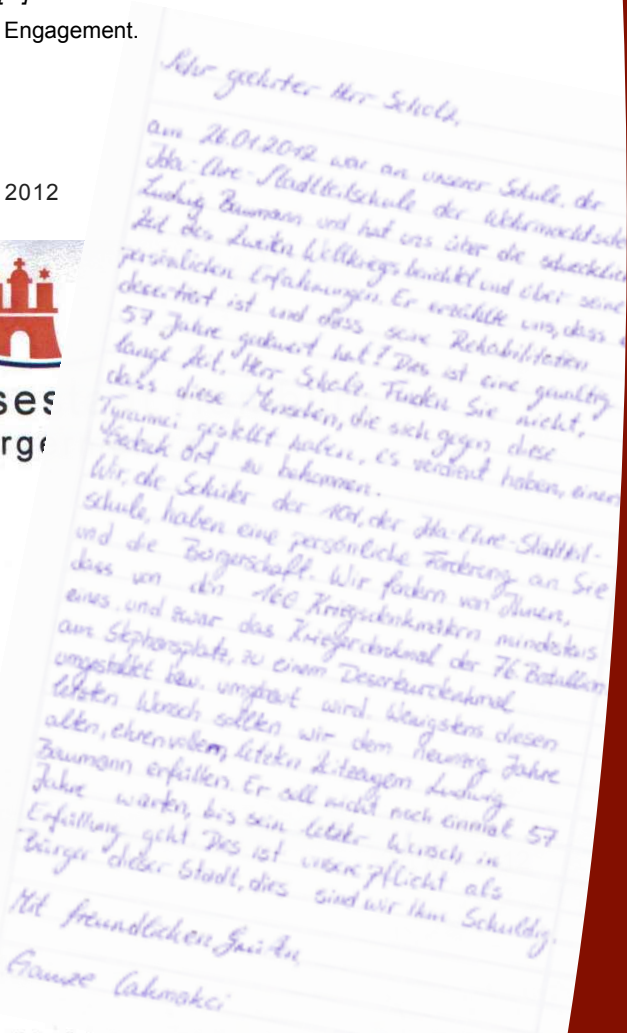 Engagement.
2012
Sehr geehrter Herr Scholz,
am 26.01.2012 war an unserer Schule, der
Ida-Ehre-Stadtteilschule der
Ludwig Baumann und hat uns über die
Zeit des Zweiten Weltkriegs berichtet und über seine
persönlichen Erfahrungen. Er erzählte uns, dass
desertiert ist und dass seine Rehabilitation
57 Jahre gedauert hat! Das ist eine gewaltig
lange Zeit, Herr Scholz. Finden Sie nicht,
dass diese Menschen, die sich gegen diese
Tyrannei gestellt haben, es verdient haben, einen
Ort zu bekommen.
Wir, die Schüler der 10d, der Ida-Ehre-Stadtteil-
schule, haben eine persönliche Forderung an Sie
und die Bürgerschaft. Wir fordern von Ihnen,
dass von den 160 Kriegsdenkmälern mindestens
eines, und zwar das Kriegerdenkmal der 76. Batallion
am Stephansplatz, zu einem
umgestaltet bzw. umgebaut wird. Wenigstens diesen
letzten Wunsch sollten wir dem neunzig Jahre
alten, ehrenvollem, letzten Zeitzeugen Ludwig
Baumann erfüllen. Er soll nicht noch einmal 57
Jahre warten, bis sein letzter Wunsch in
Erfüllung geht. Dies ist unsere Pflicht als
Bürger dieser Stadt, dies sind wir ihm Schuldig.
Mit freundlichen Grüßen